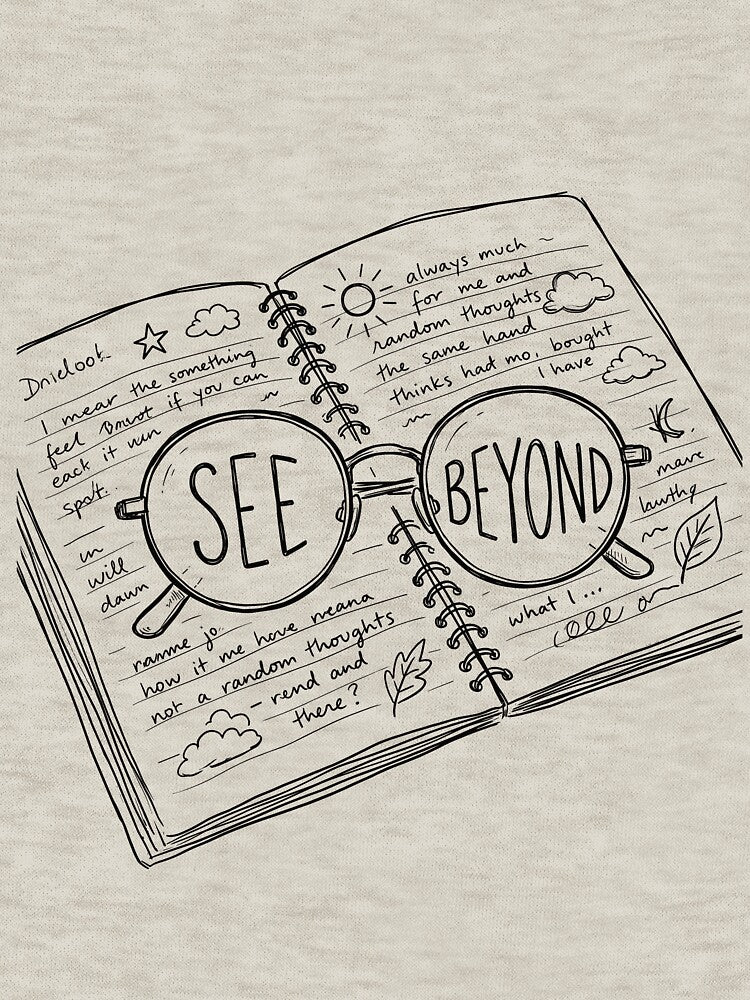 Dnielool.
I mear the something
feel Bmvot if you can
eack it wun
spot.
in
will
dawn
SEE
ramme jo.
how it me have meana
not a random thoughts
– rend and
there?
always much ~
for me and
random thoughts
the same hand
thinks had mo. bought
I have
BEYOND
mave
what I ...